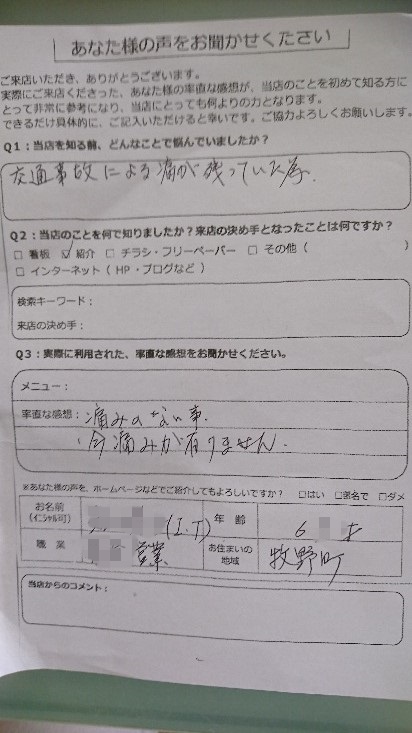 あなた様の声をお聞かせください
ご来店いただき、ありがとうございます。
実際にご来店くださった、あなた様の率直な感想が、当店のことを初めて知る方に
とって非常に参考になり、当店にとっても何よりの力となります。
できるだけ具体的に、ご記入いただけると幸いです。ご協力よろしくお願いします。
Q1：当店を知る前、どんなことで悩んでいましたか？
交通事故による痛が残っていた事.
Q2：当店のことを何で知りましたか？来店の決め手となったことは何ですか？
□ 看板 ☑ 紹介 □ チラシ・フリーペーパー □ その他（ ）
□ インターネット（ HP・ブログなど ）
検索キーワード：
来店の決め手：
Q3：実際に利用された、率直な感想をお聞かせください。
メニュー：
率直な感想：痛みのない事.
今痛みが有りません.
※あなた様の声を、ホームページなどでご紹介してもよろしいですか？ □はい □匿名で □ダメ
お名前 (ｲﾆｼｬﾙ可) (I.T) 年 齢 6 才
職 業 営業 お住まいの地域 牧野町
当店からのコメント：